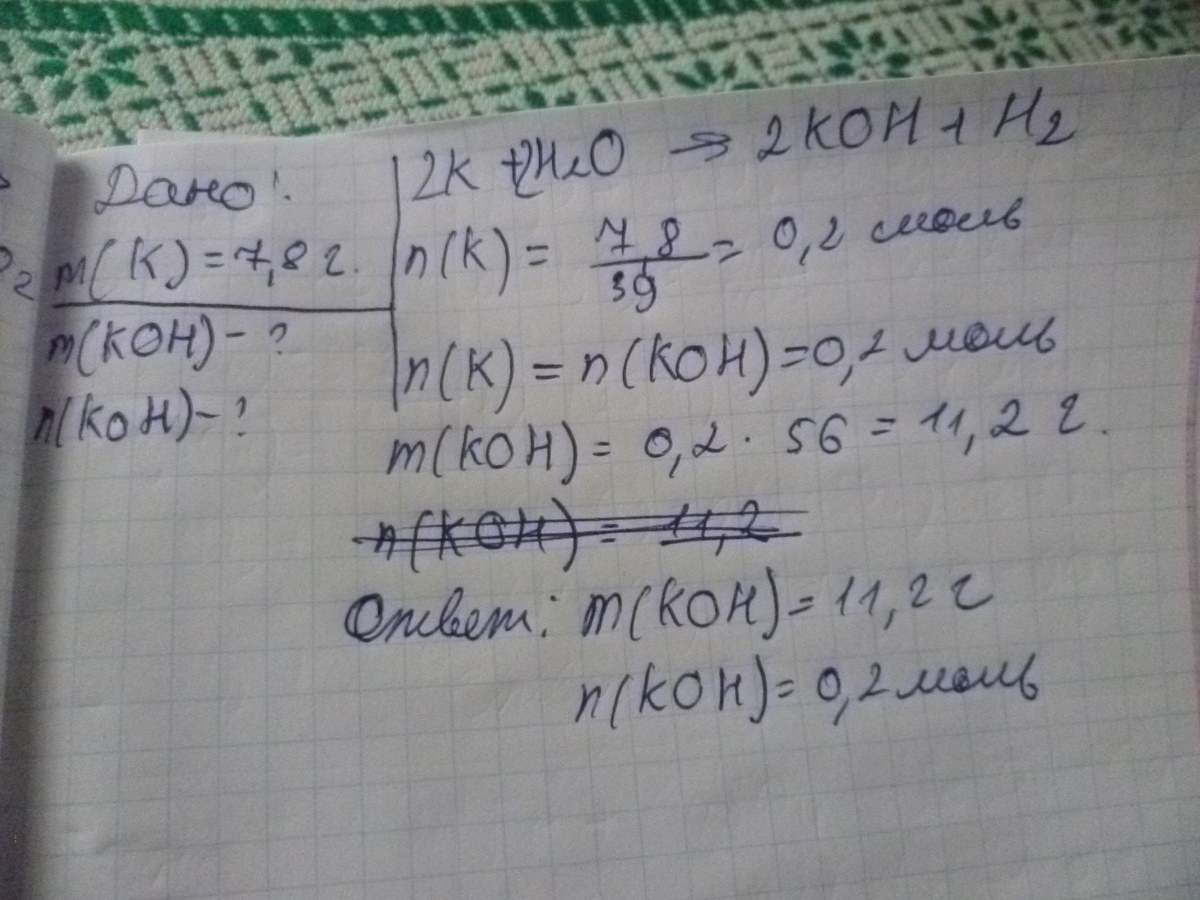 Дано:
m(K) = 7,8 г.
m(KOH) - ?
n(KOH) - ?
2K + 2H2O → 2KOH + H2
n(K) = 7,8 / 39 = 0,2 моль
n(K) = n(KOH) = 0,2 моль
m(KOH) = 0,2 · 56 = 11,2 г.
n(KOH) = 11,2
Ответ: m(KOH) = 11,2 г
n(KOH) = 0,2 моль